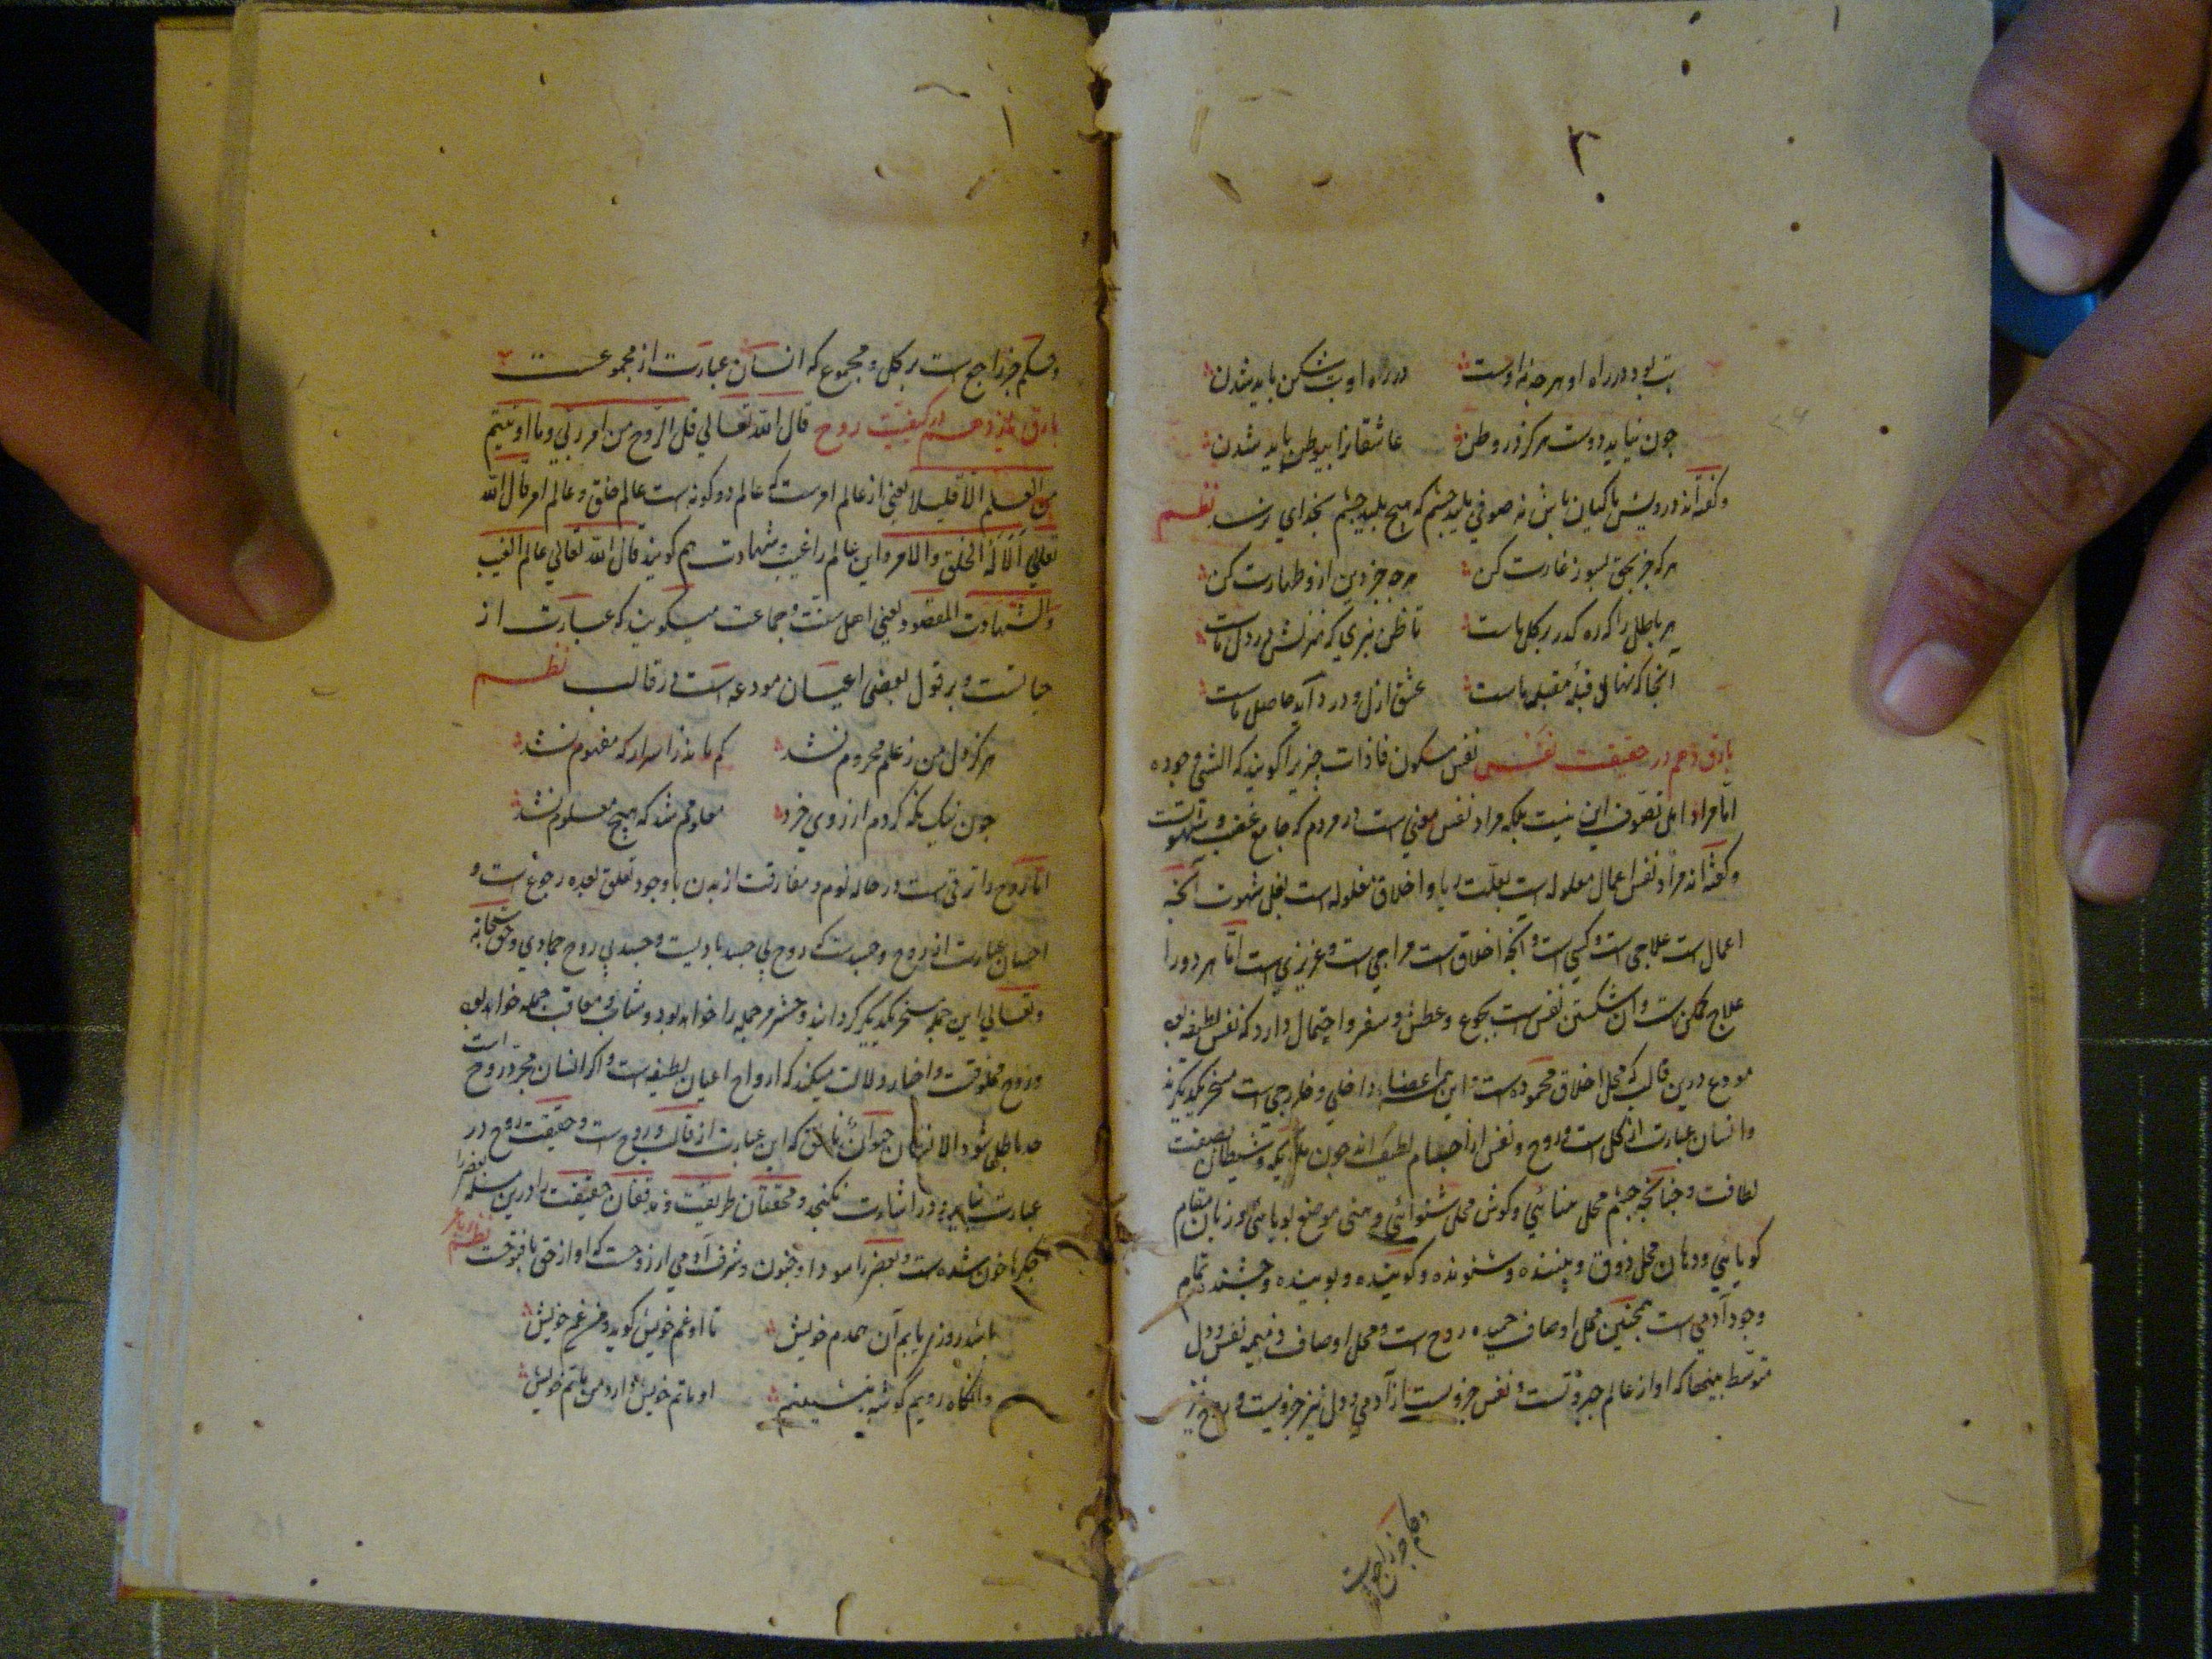 ۳
بت بود در راه او هر چه نه اوست در راه او بت شکن باید شدن
چون نیاید دوست هرگز در وطن عاشقانرا بیوطن باید شدن
و گفته‌اند درویش پاکیان باش نه صوفی پلید چشم که هیچ پلید چشم بخدای نرسد نظم
هر که جز بحق بسوز غارت کن هر چه جز دین از و طهارت کن
هر باطل را که ره گذر بر کل ماست تا ظن نبری که منزلش در دل ماست
آنجا که نهال قبله مقبل ماست عشق ازل و درد آید حاصل ماست
بارق دهم در حقیقت نفس نفس سکون فا ذات چیزیرا گویند که الشی وجوده
اما مراد اهل تصوف این نیست بلکه مراد نفس معنی است در مردم که جامع غضب و شهوت
و گفته‌اند مراد نفس اعمال معلوله است بعلت ریا و اخلاق مغلوله است بغل شهوت آنچه
اعمال است علاجی است و کسبی است و آنچه اخلاق است مزاجی است و غریزی است اما هر دو را
علاج ممکن است و آن شکستن نفس است بجوع و عطش و سفر و احتمال دارد که نفس لطیفه بود
مودع درین قالب که محل اخلاق محموده است و این همه اعضاء داخلی و خارجی است مسخر یکدیگرند
و انسان عبارت از کل است و روح و نفس از اجسام لطیف‌اند چون ملایکه و شیطان بصفت
لطافت و چنانکه چشم محل بینائی و گوش محل شنوائی و بینی موضع بویائی و زبان مقام
گویائی و دهان محل ذوق و بیننده و شنونده و گوینده و بوینده و چشنده تمام
وجود آدمی است همچنین محل اوصاف حمیده روح است و محل اوصاف ذمیمه نفس و دل
متوسط بینهما که او از عالم جبروتست و نفس جزویست از آدمی و دل نیز جزویست و روح نیز
و حکم جزراجح است
و حکم جز راجح است بر کل و مجموع که انسان عبارت از مجموعست
بارق یازدهم در کیفیت روح قال الله تعالی قل الروح من امر ربی و ما اوتیتم
من العلم الا قلیلا یعنی از عالم امرست که عالم دو گونه است عالم خلق و عالم امر قال الله
تعالی الا له الخلق والامر و این عالم را غیب و شهادت هم گویند قال الله تعالی عالم الغیب
والشهادت المقصود یعنی اهل سنت و جماعت میگویند که عبارت از
حیاتست و بر قول بعضی اعیان مودعه است در قالب نظم
هرگز دل من ز علم محروم نشد کم ماند ز اسرار که مفهوم نشد
چون نیک نگه کردم از روی خرد معلومم شد که هیچ معلوم نشد
اما روح را ترقی است در حاله نوم و مفارقت از بدن با وجود تعلق بعده رجوع است و
احسان عبارت از روح و جسدست که روح بی جسد بادیست و جسد بی روح جمادی و حق سبحانه
و تعالی این جمله مسخر یکدیگر گردانید و حشر مر جمله را خواهد بود و مثاب و معاقب جمله خواهد بود
و روح مخلوقست و اخبار دلالت میکند که ارواح اعیان لطیفه است و اگر انسان مجرد روح است
حد باطل شود الانسان حیوان ناطق که این عبارت از قالب و روح است و حقیقت روح در
عبارت نیاید و در اشارت نگنجد و محققان طریقت و مدققان حقیقت را درین مسئله بعضرا
جگرها خون شده است و بعضرا سودا و جنون و شرف آدمی از روحست که او از حق یافتوحست نظم رباعی
باشد روزی یابم آن همدم خویش تا او غم خویش گوید و من غم خویش
وانگاه رویم گوشه بنشینیم او ماتم خویش دارد و من ماتم خویش